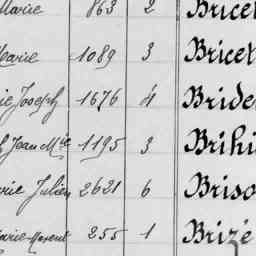 Marie 863 2 Bricet
Marie 1089 3 Bricet
Joseph 1676 4 Bride
Jean Mie 1195 3 Brihi
Julien 2621 6 Briso
Marie 255 1 Brizé